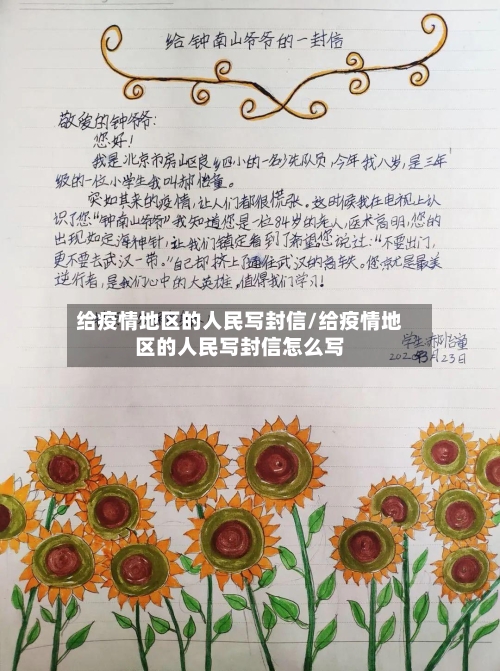 给钟南山爷爷的一封信
敬爱的钟爷爷:
您好!
我是北京市房山区良乡四小的一名少先队员,今年我八岁,是三年
级的一位小学生我叫郝偣童。
突如其来的疫情,让人们都很慌张。这时候我在电视上认
识了您“钟南山爷爷”我知道您是一位84岁的老人,医术高明,您的
出现如定海神针,让我们镇定看到了希望您说过:“不要出门,
更不要去武汉一带。”自己却挤上了通往武汉的高铁。您就是最美
逆行者,是我们心中的大英雄,值得我们学习!
给疫情地区的人民写封信/给疫情地
区的人民写封信怎么写
学生:郝
2020 3月23日